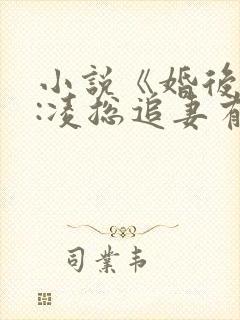 小説《婚後
:凌総追妻有
司業韦